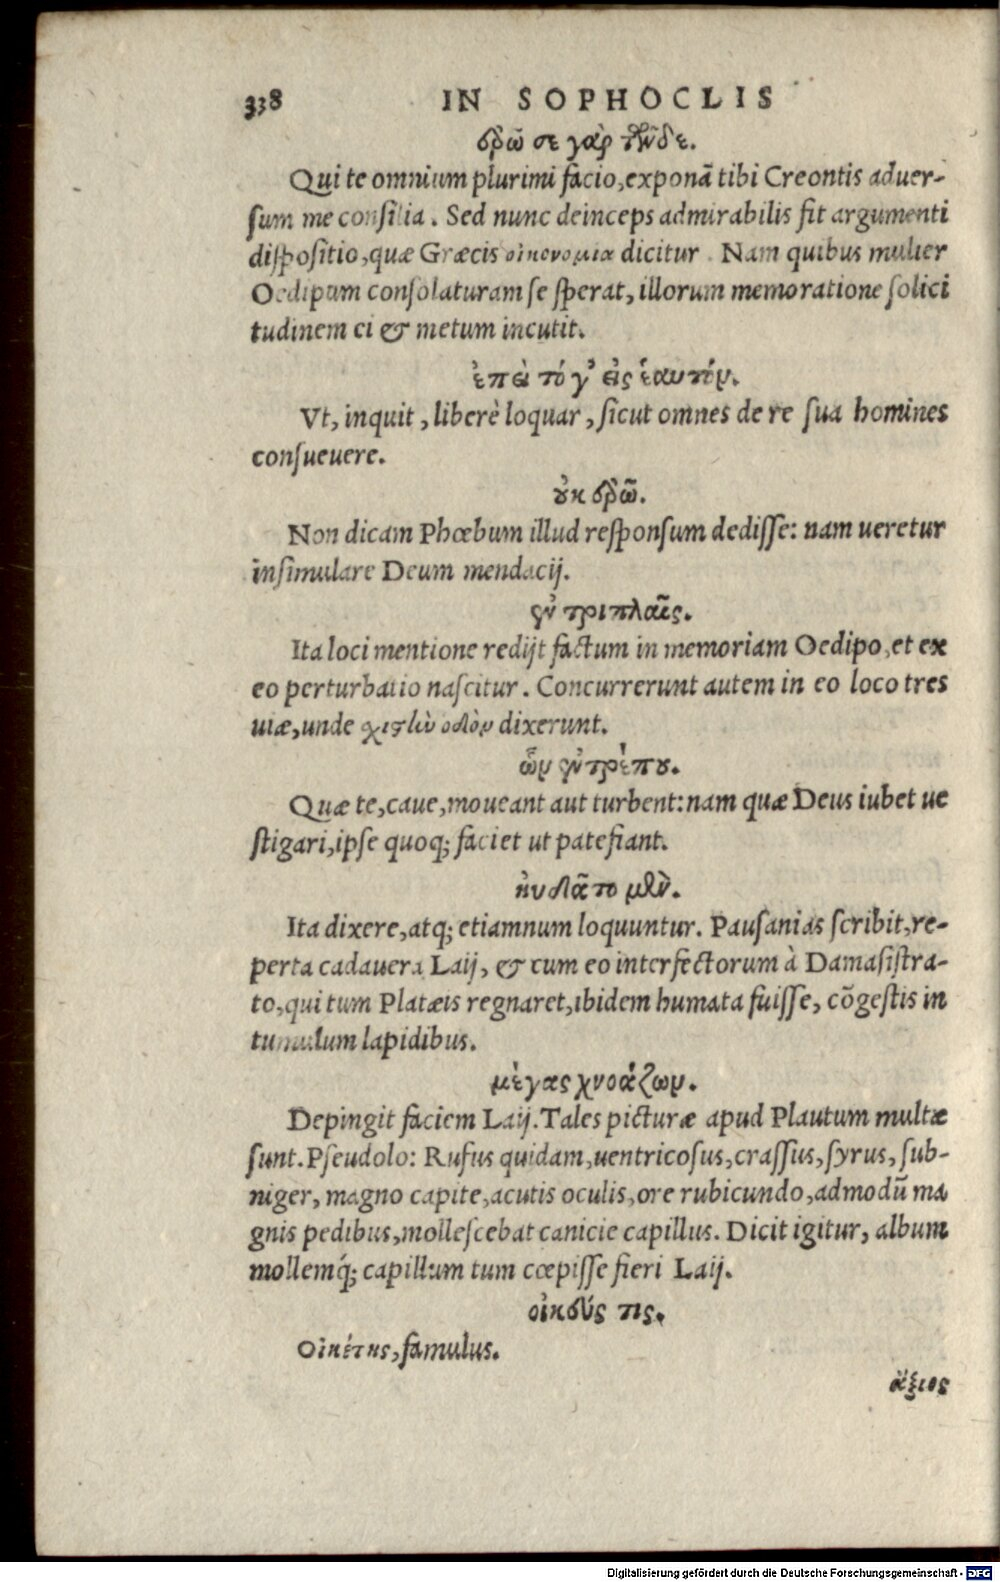 338 IN SOPHOCLIS
ἐρῶ σε γὰρ τῶνδε.
Qui te omnium plurimi facio, exponā tibi Creontis aduer-
sum me consilia. Sed nunc deinceps admirabilis fit argumenti
dispositio, quæ Græcis οἰκονομια dicitur. Nam quibus mulier
Oedipum consolaturam se sperat, illorum memoratione solici
tudinem ei & metum incutit.
ἐπεὶ τό γ' εἰς ἑαυτόν.
Vt, inquit, liberè loquar, sicut omnes de re sua homines
consueuere.
οὐκ ἐρῶ.
Non dicam Phœbum illud responsum dedisse: nam ueretur
insimulare Deum mendacij.
ἐν τριπλαῖς.
Ita loci mentione redijt factum in memoriam Oedipo, et ex
eo perturbatio nascitur. Concurrerunt autem in eo loco tres
uiæ, unde χιστὴν οδὸν dixerunt.
ὧν ἐντρέπου.
Quæ te, caue, moueant aut turbent: nam quæ Deus iubet ue
stigari, ipse quoq; faciet ut patefiant.
ηὐδᾶτο μὲν.
Ita dixere, atq; etiamnum loquuntur. Pausanias scribit, re-
perta cadauera Laij, & cum eo interfectorum à Damasistra-
to, qui tum Platæis regnaret, ibidem humata fuisse, cōgestis in
tumulum lapidibus.
μέγας χνοάζων.
Depingit faciem Laij. Tales picturæ apud Plautum multæ
sunt. Pseudolo: Rufus quidam, uentricosus, crassus, syrus, sub-
niger, magno capite, acutis oculis, ore rubicundo, admodū ma
gnis pedibus, mollescebat canicie capillus. Dicit igitur, album
mollemq́; capillum tum cœpisse fieri Laij.
οἰκεύς τις.
Οἰκέτης, famulus.
ἄξιος
Digitalisierung gefördert durch die Deutsche Forschungsgemeinschaft - DFG